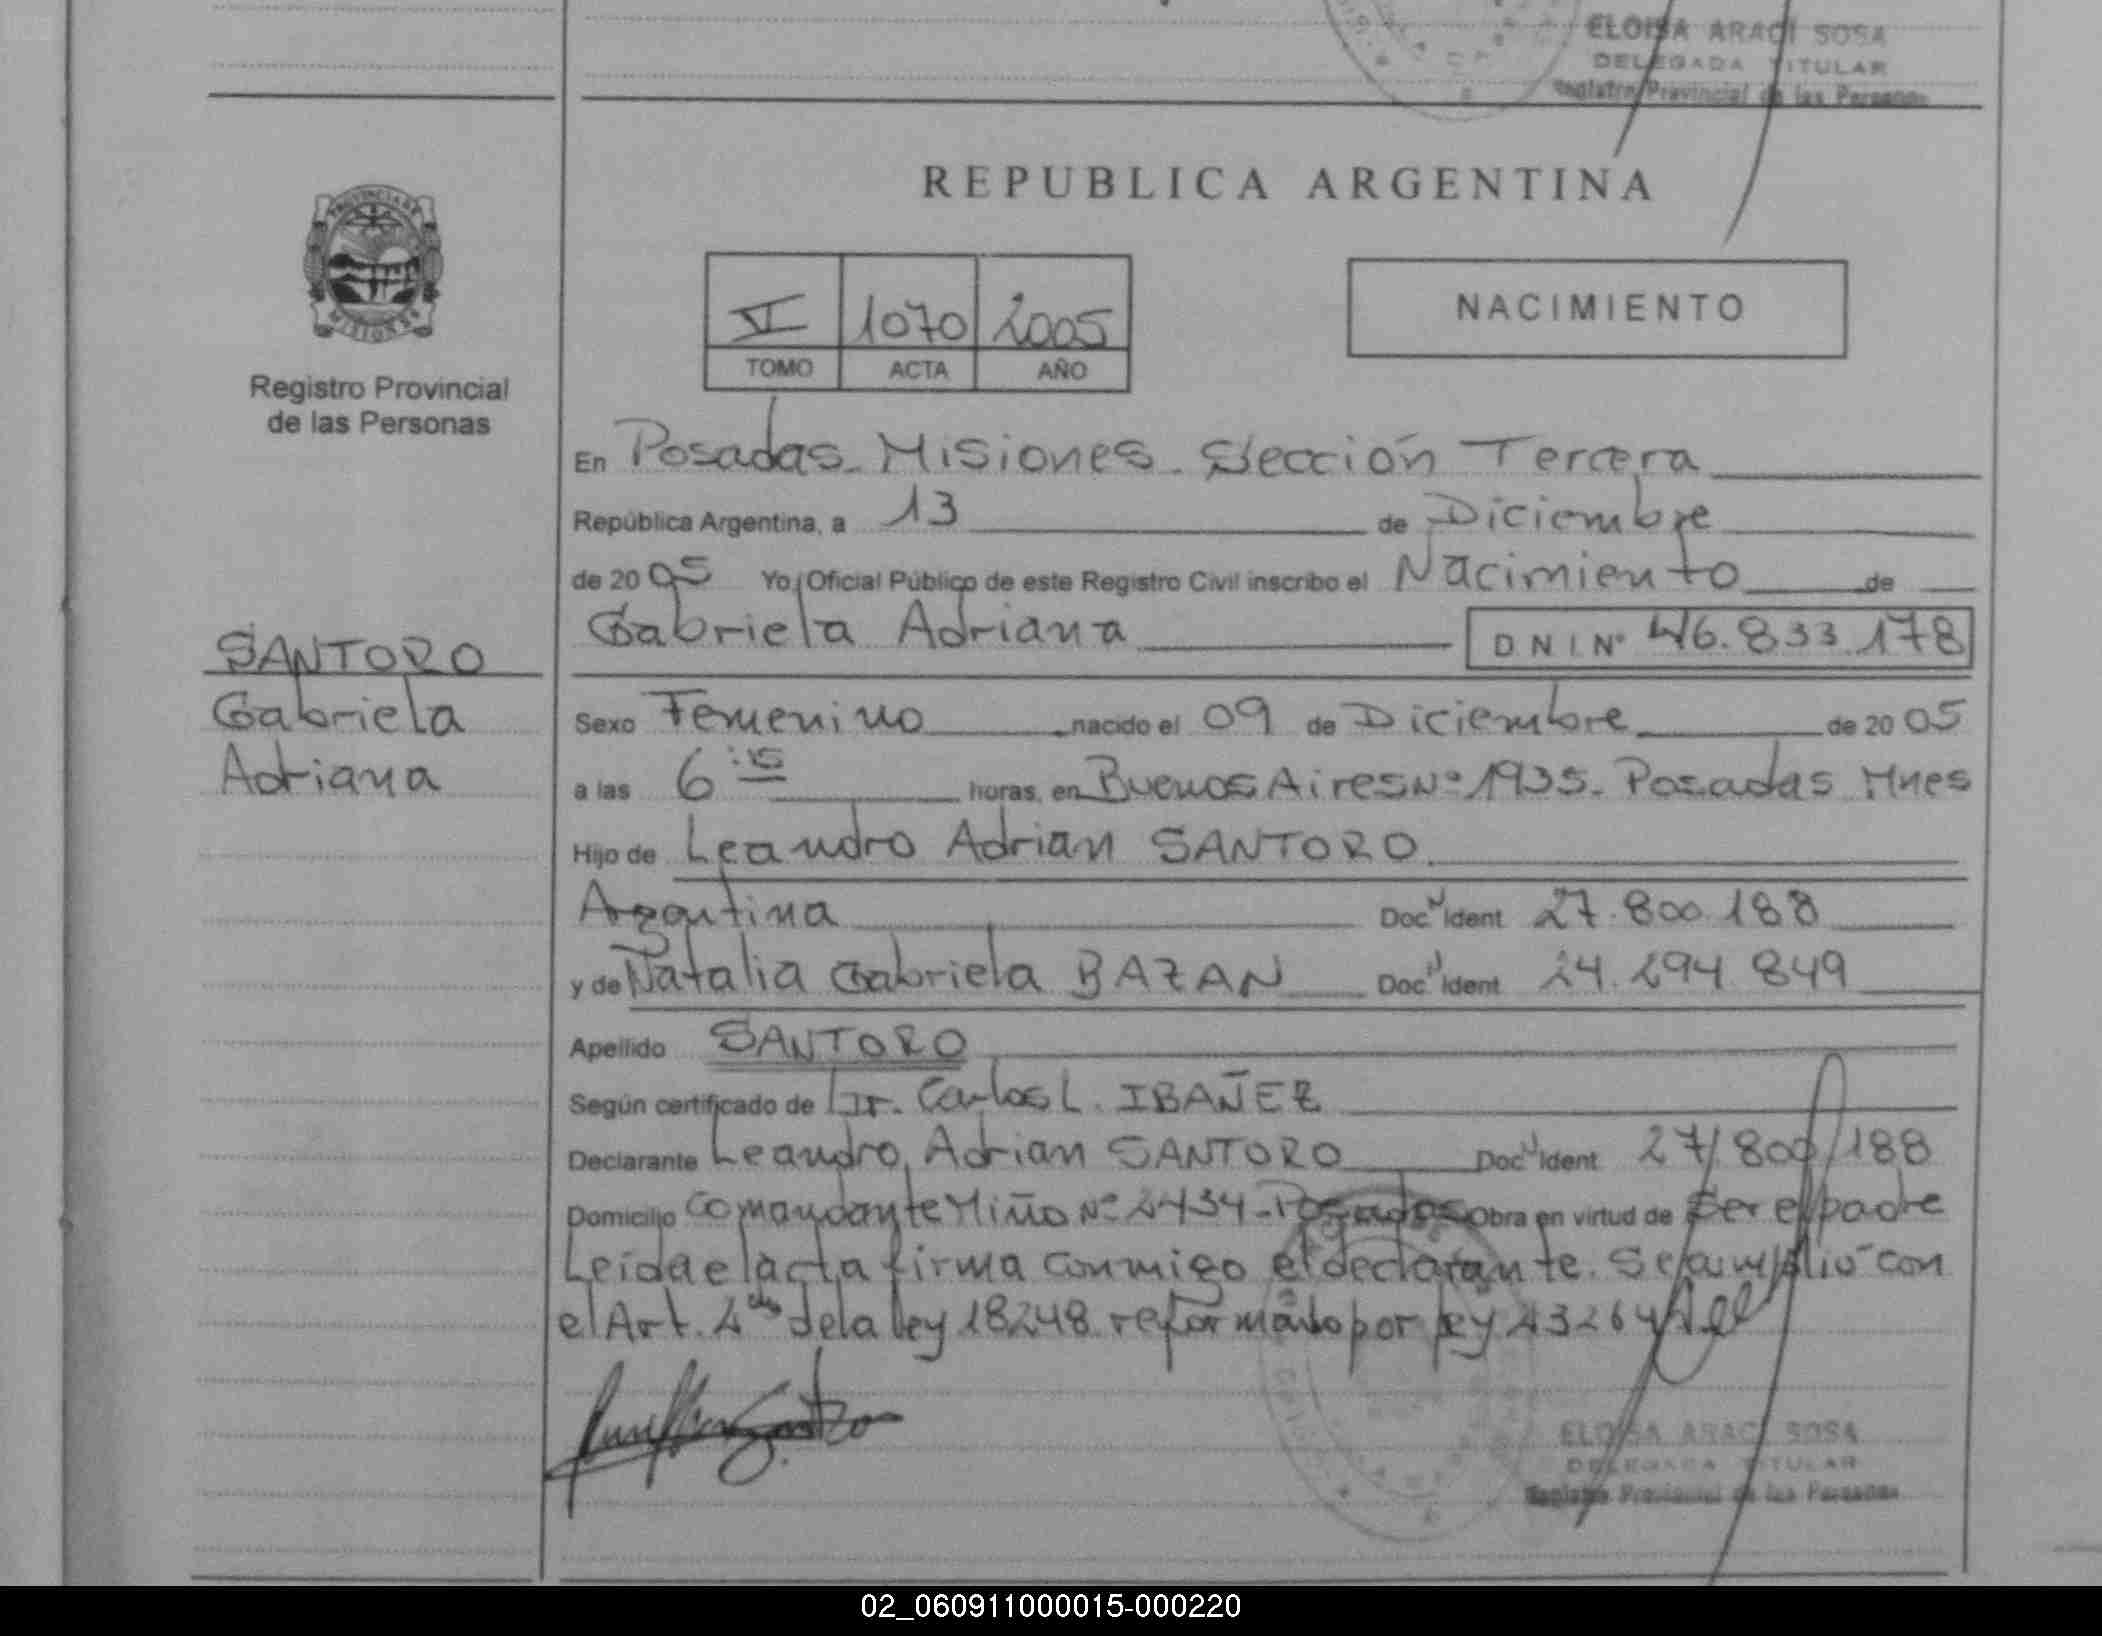 ELOISA ARACI SOSA
DELEGADA TITULAR
Registro Provincial de las Personas
REPUBLICA ARGENTINA
PROVINCIA DE
MISIONES
VI 1070 2005
TOMO ACTA AÑO
NACIMIENTO
Registro Provincial
de las Personas
En Posadas. Misiones. Sección Tercera
República Argentina, a 13 de Diciembre
de 2005 Yo, Oficial Público de este Registro Civil inscribo el Nacimiento de
Gabriela Adriana D N I N° 46.833.178
SANTORO
Gabriela
Adriana
Sexo Femenino nacido el 09 de Diciembre de 2005
a las 6:15 horas, en Buenos Aires Nº 1935. Posadas Mnes
Hijo de Leandro Adrian SANTORO
Argentina Doc Ident 27.800.188
y de Natalia Gabriela BAZAN Doc Ident 24.294.849
Apellido SANTORO
Según certificado de Dr. Carlos L. IBAÑEZ
Declarante Leandro Adrian SANTORO Doc Ident 27/800/188
Domicilio Comandante Miño Nº 2434 - Posadas Obra en virtud de Ser el padre
Leida el acta firma conmigo el declarante. Se cumplió con
el Art. de la ley 18248 reformado por ley 23264
ELOISA ARACI SOSA
DELEGADA TITULAR
Registro Provincial de las Personas
02_060911000015-000220